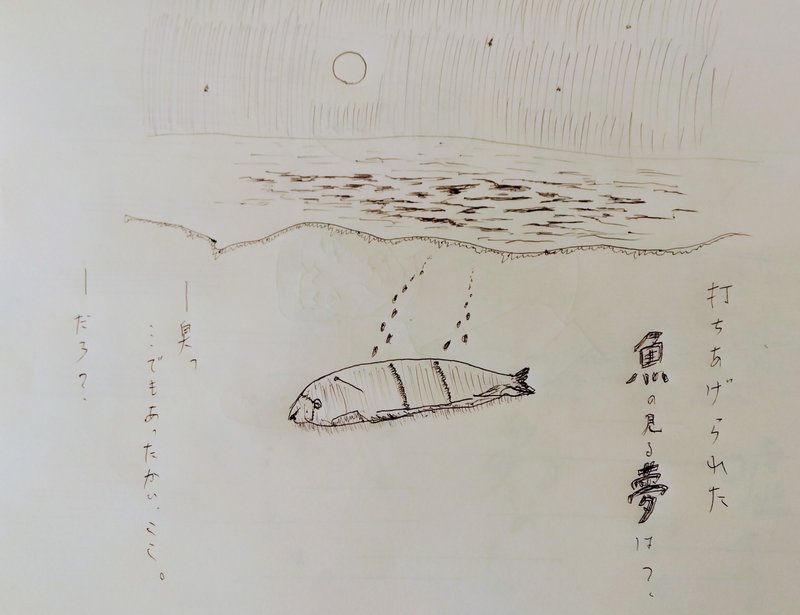 打ちあげられた
魚の見る夢は?
―臭っ
ここでもあったかい、ここ。
―だろ?